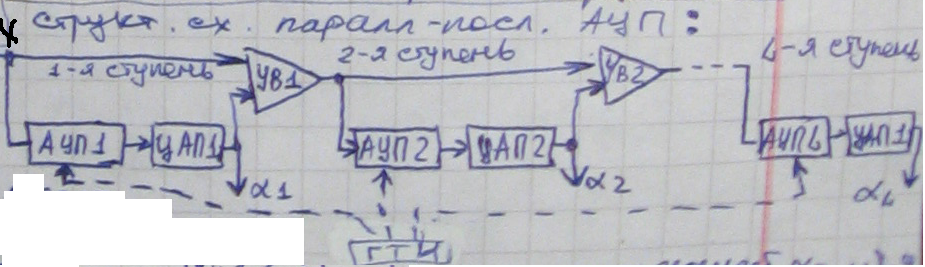 структ. сх. паралл-посл. АЦП:
x
1-я ступень
УВ1
2-я ступень
УВ2
L-я ступень
АЦП1
ЦАП1
АЦП2
ЦАП2
АЦПL
ЦАП1
α1
α2
αL
ГТИ